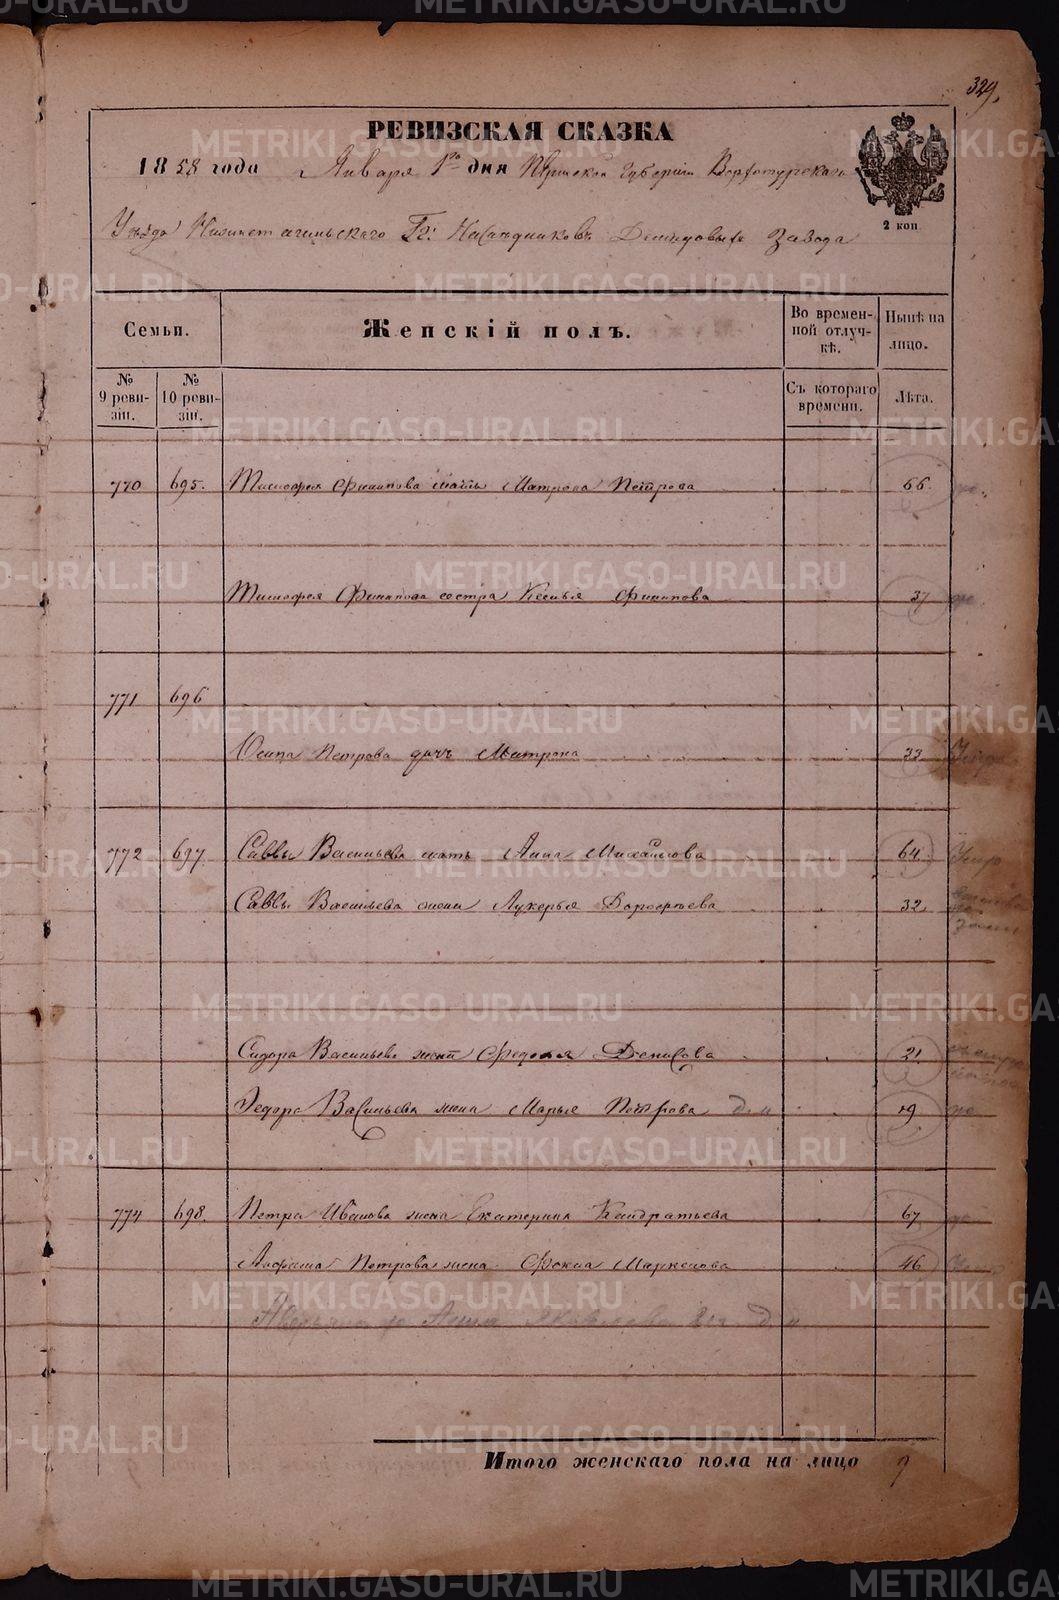 329.
РЕВИЗСКАЯ СКАЗКА
1858 года Января 1го дня Пермской Губернiи Верхотурскаго
Уѣзда Нижнетагильскаго Гг. Наслѣдниковъ Демидовыхъ Завода
2 коп
Семьи.
Женскiй полъ.
Во времен-
ной отлуч-
кѣ.
Нынѣ на
лицо.
№
9 реви-
зiи.
№
10 реви-
зiи.
Съ котораго
времени.
Лѣта.
770 695. Тимофея Филипова мать Матрона Петрова 66.
Тимофея Филипова сестра Ксенья Филипова 37
771 696
Осипа Петрова дочь Матрона 33
772 697. Саввы Васильева мать Анна Михайлова 64.
Саввы Васильева жена Лукерья Дорофѣева 32
Сидора Васильева жена Федосья Денисова 21.
Федора Васильева жена Марья Петрова 19
774 698. Петра Иванова жена Екатерина Кондратьева 67
Петрова жена Фокла Маркелова 46
Анна Яковлева
Итого женскаго пола на лицо 9
METRIKI.GASO-URAL.RU